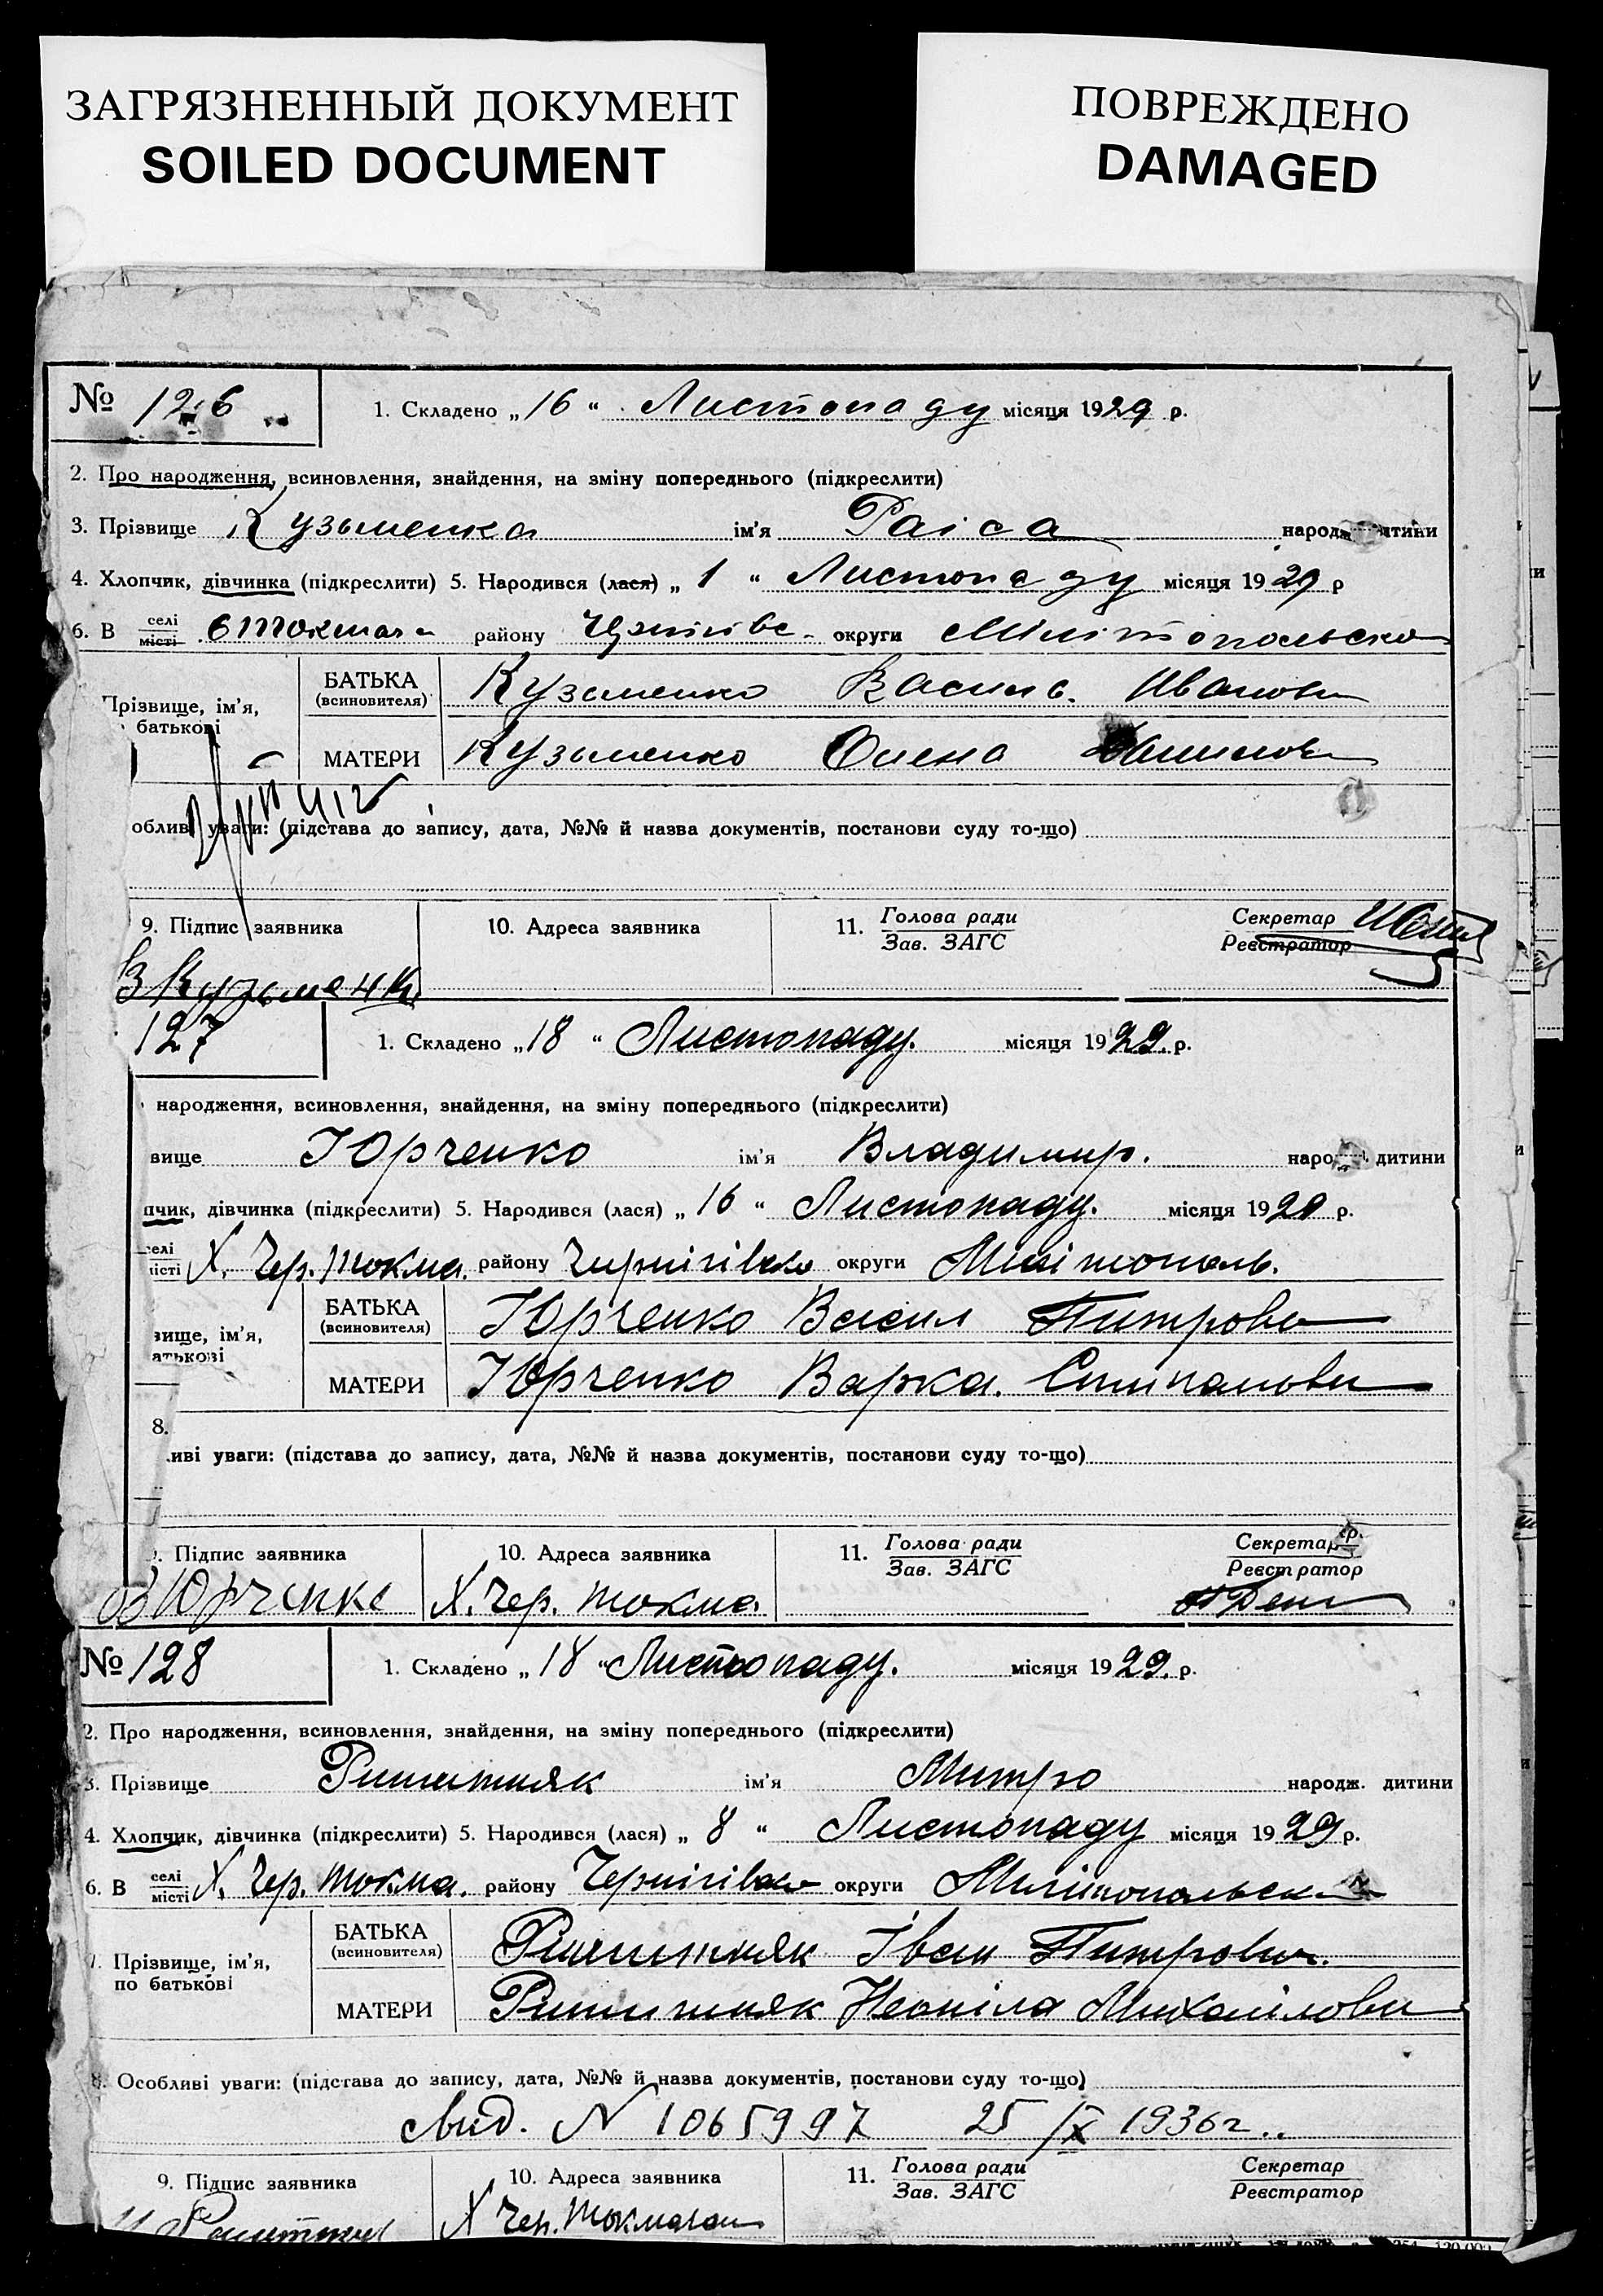 ЗАГРЯЗНЕННЫЙ ДОКУМЕНТ
SOILED DOCUMENT
ПОВРЕЖДЕНО
DAMAGED
№ 126
1. Складено „ 16 “ Листопаду місяця 1929 р.
2. Про народження, всиновлення, знайдення, на зміну попереднього (підкреслити)
3. Прізвище Кузьменко ім'я Раіса народ тини
4. Хлопчик, дівчинка (підкреслити) 5. Народився (лася) „ 1 “ Листопаду місяця 1929 р
6. В селі місті району округи
Прізвище, ім'я, батькові
БАТЬКА (всиновителя) Кузьменко Василь Иванови
МАТЕРИ Кузьменко Олена
обливі уваги: (підстава до запису, дата, №№ й назва документів, постанови суду то-що)
9. Підпис заявника 10. Адреса заявника 11. Голова ради Зав. ЗАГС Секретар Реєстратор
127
1. Складено „ 18 “ Листопаду. місяця 1929. р.
народження, всиновлення, знайдення, на зміну попереднього (підкреслити)
вище Юрченко ім'я Владимир. наро дитини
пчик, дівчинка (підкреслити) 5. Народився (лася) „ 16 “ Листопаду. місяця 1929 р.
селі місті Х. Чер. Токма. району округи Милітополь.
вище, ім'я, атькові
БАТЬКА (всиновителя) Юрченко Васил Питрови
МАТЕРИ Юрченко Варка. Стипанови
8.
иві уваги: (підстава до запису, дата, №№ й назва документів, постанови суду то-що)
Підпис заявника 10. Адреса заявника 11. Голова ради Зав. ЗАГС Секретар Реєстратор
Х. Чер. Токма.
№ 128
1. Складено „ 18 “ Листопаду. місяця 1929. р.
2. Про народження, всиновлення, знайдення, на зміну попереднього (підкреслити)
3. Прізвище ім'я Митро народж. дитини
4. Хлопчик, дівчинка (підкреслити) 5. Народився (лася) „ 8 “ Листопаду місяця 1929 р.
6. В селі місті Х. Чер. Токма. району округи
7. Прізвище, ім'я, по батькові
БАТЬКА (всиновителя) Іван Питрович.
МАТЕРИ Неоніла Михайлови
8. Особливі уваги: (підстава до запису, дата, №№ й назва документів, постанови суду то-що)
Свид. N 1065997 25/IX 1936 г..
9. Підпис заявника 10. Адреса заявника 11. Голова ради Зав. ЗАГС Секретар Реєстратор
Х Чер. Токмачан